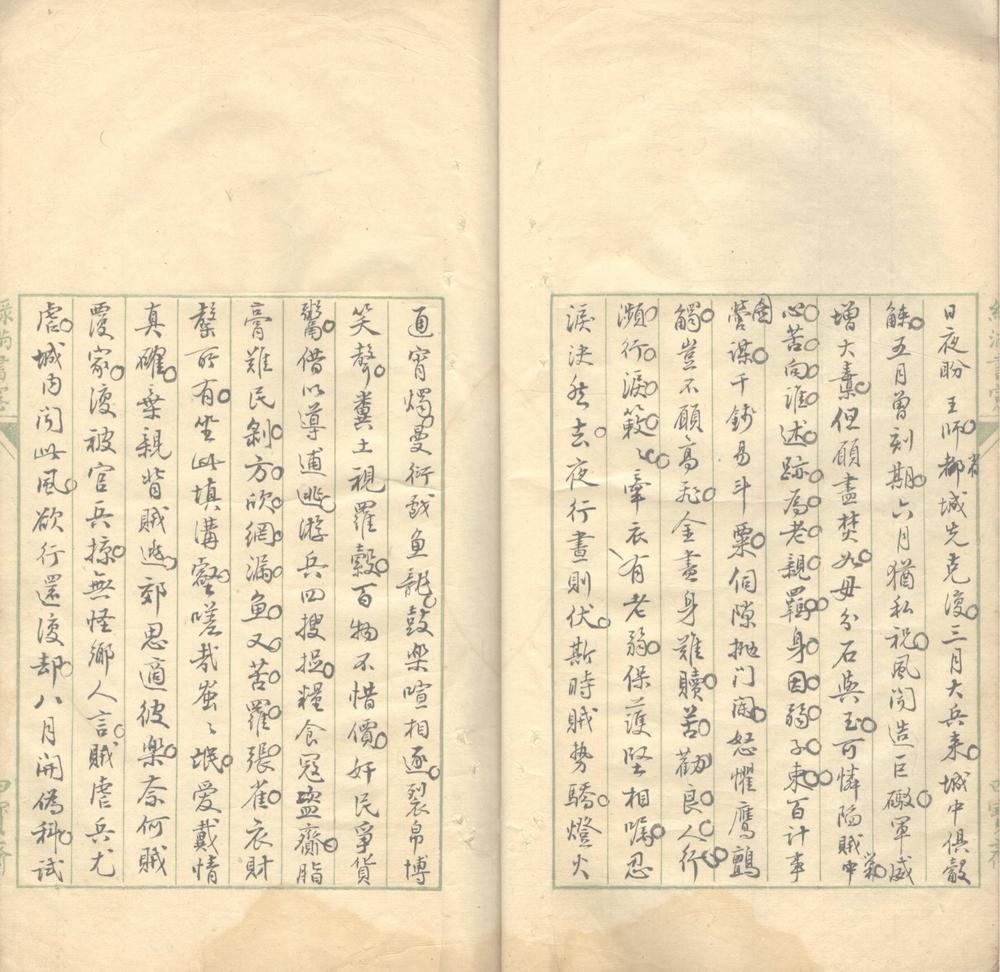 日夜盼王師都城先克復三月大兵來城中俱觳
觫五月曾刻期六月猶私祝風聞造巨礮軍威
增大纛但願盡焚如毋分石與玉可憐陷賊中
心苦向誰述跡爲老親羈身因弱子束百計事
營謀千錢易斗粟伺隙抛门闔怒懼鷹鸇
觸豈不願高飛金盡身難贖苦勸良人行
瀕行淚簌〻牽衣有老弱保護堅相囑忍
淚決然去夜行晝則伏斯時賊勢驕燈火
通宵燭曼衍戲鱼龍鼓樂喧相逐裂帛博
笑聲糞土視羅縠百物不惜價奸民爭貨
鬻借以導逋逃游兵四搜捉糧食寇盗齎脂
膏難民剝方欣網漏鱼又苦羅張雀衣財
罄所有坐此填溝壑嗟哉蚩〻氓愛戴情
真確棄親背賊逃郊思適彼樂奈何賊
覆家復被官兵掠無怪鄉人言賊虐兵尤
虐城内闻此風欲行還復却八月開僞科試